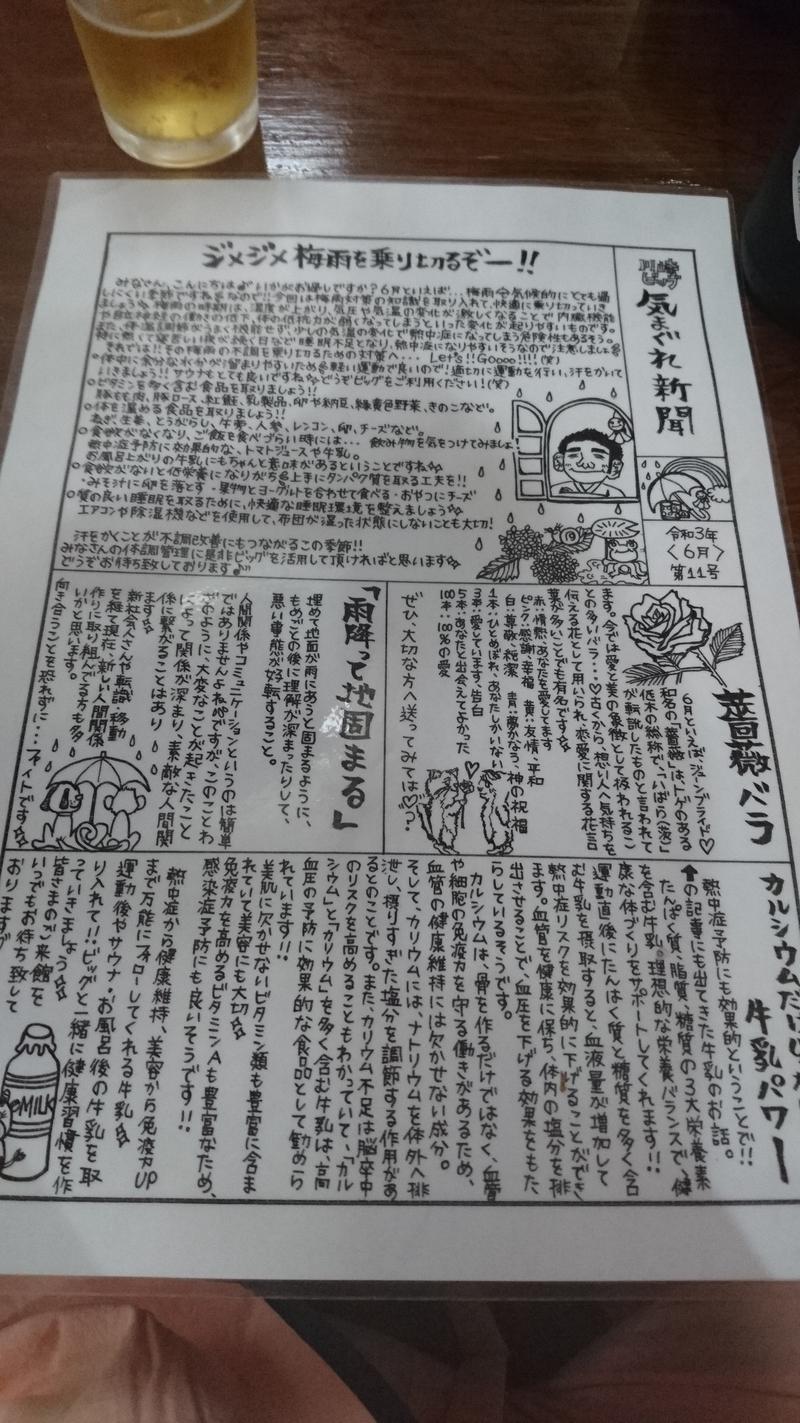 川崎
ビッグ
気まぐれ新聞
令和3年
〈6月〉
第11号
ジメジメ梅雨を乗り切るぞー!!
みなさん、こんにちは。いかがお過しですか?6月といえば…梅雨
いきましょう
また、体温調節がうまく機能せず、少しの気温の変化で熱中症になってしまう危険性もあるそう。
特に熱くて寝苦しい夜が続く日など睡眠不足となり、熱中症になりやすいそうなので注意しましょう
それでは!!その梅雨の不調を乗り切るための対策へ… Let's!! Goooo!!!!(笑)
○体中に余分な水分が溜まりやすいため軽い運動で良いので!適切に運動を行い、汗をかいて
いきましょう!!サウナもとても良いですねどうぞビッグをご利用ください!(笑)
○ビタミンを多く含む食品を取りましょう!!
豚もも肉、豚ロース、紅鮭、乳製品、卵や納豆、緑黄色野菜、きのこなど。
○体を温める食品を取りましょう!!
ねぎ、生姜、とうがらし、牛蒡、人参、レンコン、卵、チーズなど。
○食欲がなくなり、ご飯を食べづらい時には…飲み物を気をつけてみましょ!
熱中症予防に効果的な、トマトジュースや牛乳。
お風呂上がりの牛乳にもちゃんと意味があるということですね
○食欲がないと低栄養になりがち上手にタンパク質を取る工夫を!!
・みそ汁に卵を落とす・果物とヨーグルトを合わせて食べる・おやつにチーズ
○質の良い睡眠を取るために、快適な睡眠環境を整えましょう
エアコンや除湿機などを使用して、布団が湿った状態にしないことも大切!
汗をかくことが不調改善にもつながるこの季節!!
みなさんの体調管理に是非ビッグを活用して頂ければと思います
どうぞお待ち致しております♪
薔薇バラ
6月といえば、ジューンブライド♡
和名の「薔薇」は、トゲのある
低木の総称で、「いばら(茨)」
が転訛したものと言われて
ます。今では愛と美の象徴として扱われるこ
との多いバラ…♡古くから、想い人へ気持ちを
伝える花として用いられ、恋愛に関する花言
葉が多いことでも有名です
赤:情熱、あなたを愛してます
ピンク:感謝、幸福 黄:友情、平和
白:尊敬、純潔 青:夢かなう、神の祝福
1本:ひとめぼれ、あなたしかいない
3本:愛しています、告白
5本:あなたと出会えてよかった
100本:100%の愛
ぜひ、大切な方へ送ってみては♡?
「雨降って地固まる」
埋めて地面が雨にあうと固まるように、
もめごとの後に理解が深まったりして、
悪い事態が好転すること。
人間関係やコミュニケーションというのは簡単
ではありませんよねですが、このことわ
ざのように、大変なことが起きたこと
によって関係が深まり、素敵な人間関
係に繋がることはあり
ます
新社会人さんや転職・移動
を経て現在、新しい人間関係
作りに取り組んでる方も多
いかと思います。
向き合うことを恐れずに…ファイトです
カルシウムだけじゃ
牛乳パワー
熱中症予防にも効果的ということで!!
↑の記事にも出てきた牛乳のお話。
たんぱく質、脂質、糖質の3大栄養素
を含む牛乳。理想的な栄養バランスで、健
康な体づくりをサポートしてくれます!!
運動直後にたんぱく質と糖質を多く含
む牛乳を摂取すると、血液量が増加して
熱中症リスクを効果的に下げることができ
ます。血管を健康に保ち、体内の塩分を排
出させることで、血圧を下げる効果をもた
らしているそうです。
カルシウムは、骨を作るだけではなく、血管
や細胞の免疫力を守る働きがあるため、
血管の健康維持には欠かせない成分。
そして、カリウムには、ナトリウムを体外へ排
泄し、摂りすぎた塩分を調節する作用があ
るとのことです。また、カリウム不足は脳卒中
のリスクを高めることもわかっていて、「カル
シウム」と「カリウム」を多く含む牛乳は、高
血圧の予防に効果的な食品として勧めら
れています!!
美肌に欠かせないビタミン類も豊富に含ま
れていて美容にも大切
免疫力を高めるビタミンAも豊富なため、
感染症予防にも良いそうです!!
熱中症から健康維持、美容から免疫力UP
まで万能にフォローしてくれる牛乳
運動後やサウナ・お風呂後の牛乳を取
り入れて!!ビッグと一緒に健康習慣を作
っていきましょう
皆さまのご来館を
いつでもお待ち致して
おります
MILK